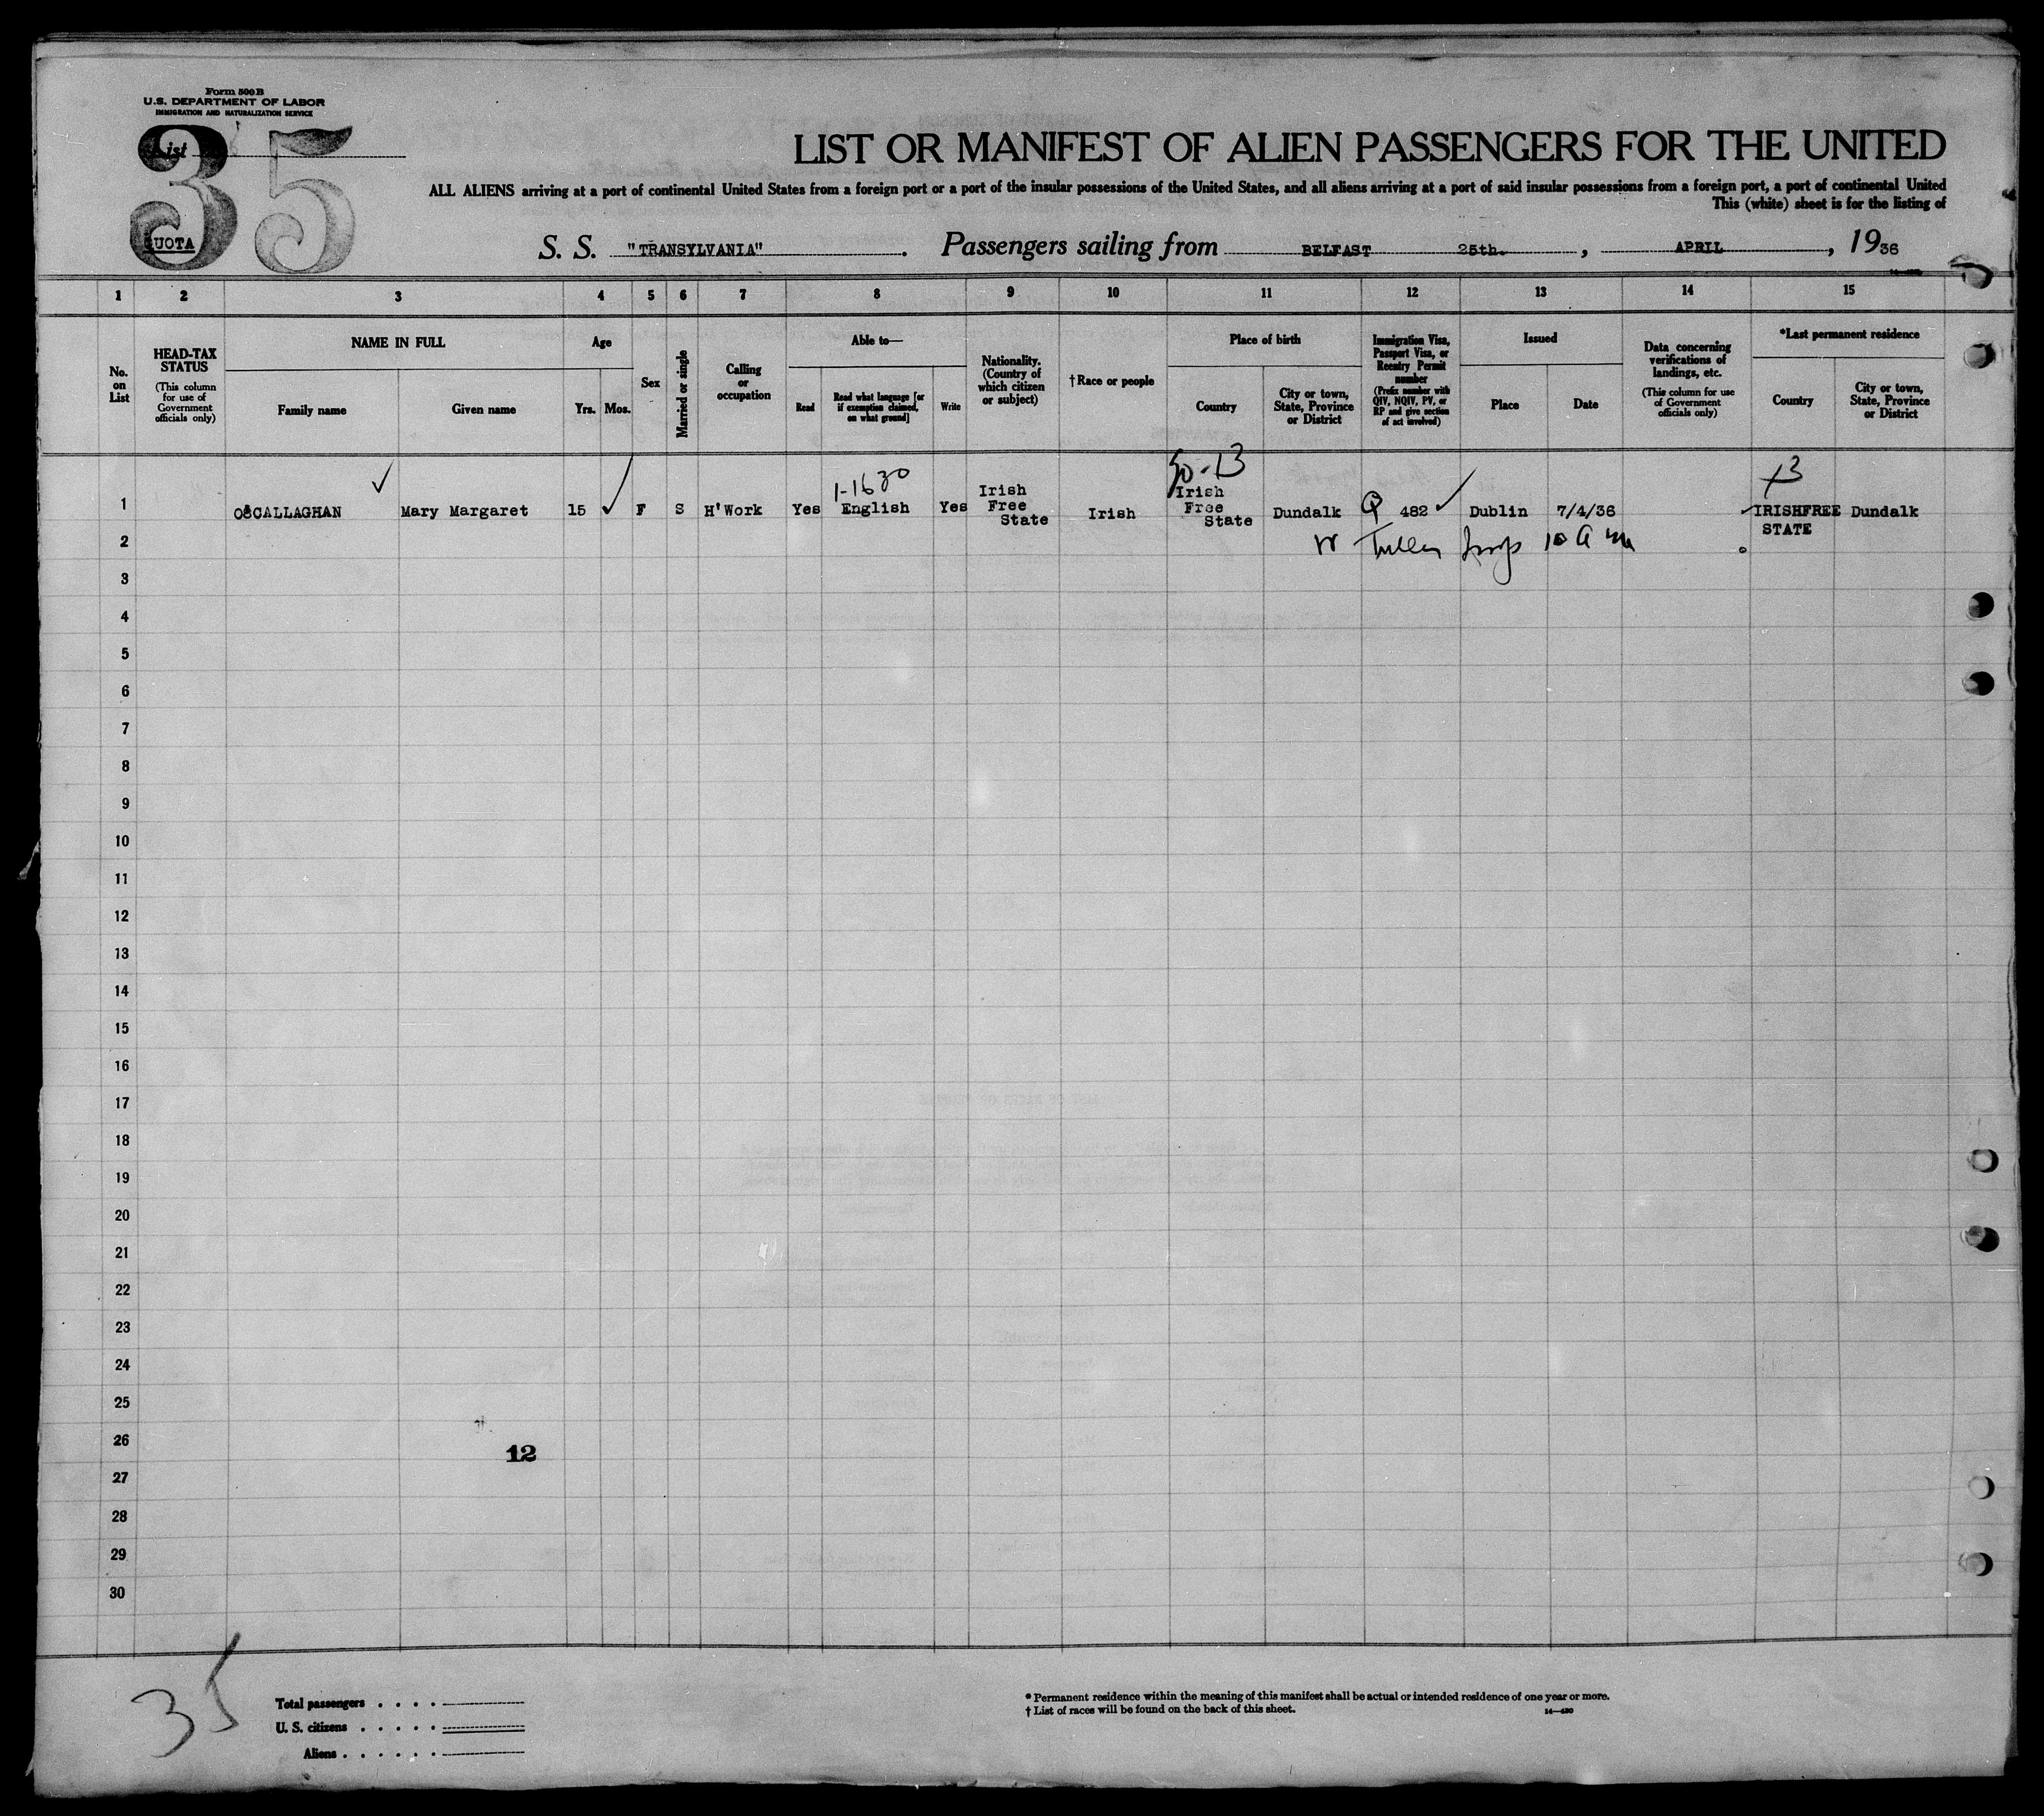 Form 500B
U.S. DEPARTMENT OF LABOR
IMMIGRATION AND NATURALIZATION SERVICE
List
35
QUOTA
LIST OR MANIFEST OF ALIEN PASSENGERS FOR THE UNITED
ALL ALIENS arriving at a port of continental United States from a foreign port or a port of the insular possessions of the United States, and all aliens arriving at a port of said insular possessions from a foreign port, a port of continental United
This (white) sheet is for the listing of
S. S. "TRANSYLVANIA". Passengers sailing from BELFAST 25th. , APRIL , 1936
1 2 3 4 5 6 7 8 9 10 11 12 13 14 15
No. on List
HEAD-TAX STATUS
(This column for use of Government officials only)
NAME IN FULL
Family name
Given name
Age
Yrs. Mos.
Sex
Married or single
Calling or occupation
Able to—
Read
Read what language [or if exemption claimed, on what ground]
Write
Nationality. (Country of which citizen or subject)
†Race or people
Place of birth
Country
City or town, State, Province or District
Immigration Visa, Passport Visa, or Reentry Permit number
(Prefix number with QIV, NQIV, PV, or RP and give section of act involved)
Issued
Place
Date
Data concerning verifications of landings, etc.
(This column for use of Government officials only)
*Last permanent residence
Country
City or town, State, Province or District
1-1630
50-13
1 O'CALLAGHAN Mary Margaret 15 ✓ F S H'Work Yes English Yes Irish Free State Irish Irish Free State Dundalk Q 482 ✓ Dublin 7/4/36 IRISHFREE STATE Dundalk
2 10 a m
3
4
5
6
7
8
9
10
11
12
13
14
15
16
17
18
19
20
21
22
23
24
25
26
12
27
28
29
30
35
Total passengers . . . .
U. S. citizens . . . . .
Aliens . . . . . .
* Permanent residence within the meaning of this manifest shall be actual or intended residence of one year or more.
† List of races will be found on the back of this sheet.
14—430